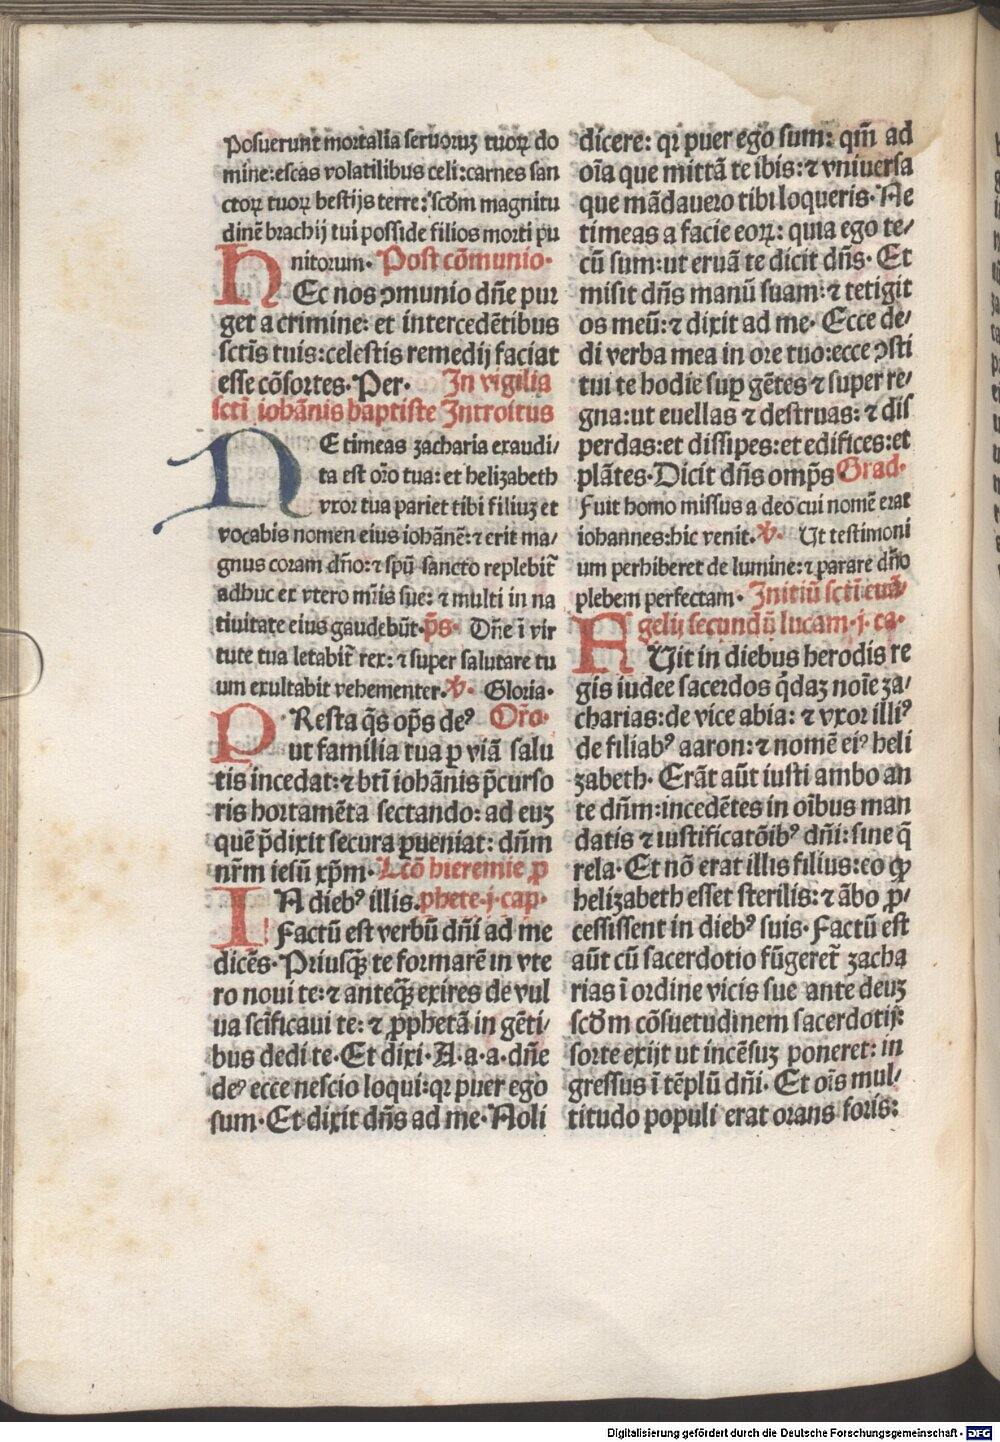 Posuerunt mortalia seruoruꝫ tuoꝝ do
mine:escas volatilibus celi:carnes san
ctoꝝ tuoꝝ bestijs terre: scd̄m magnitu
dinē brachij tui posside filios morti pu
nitorum. Post cōmunio.
HEc nos ꝯmunio dn̄e pur
get a crimine: et intercedētibus
sctīs tuis:celestis remedij faciat
esse cōsortes. Per. In vigilia
sctī iohānis baptiste Introitus
NE timeas zacharia exaudi/
ta est or̄o tua: et helizabeth
vxor tua pariet tibi filiuꝫ et
vocabis nomen eius iohānē: ⁊ erit ma/
gnus coram dn̄o: ⁊ spū sancto replebit̄
adhuc ex vtero mr̄is sue: ⁊ multi in na
tiuitate eius gaudebūt. p̄s. Dn̄e ī vir
tute tua letabit̄ rex: ⁊ super salutare tu
um exultabit vehementer. ℣. Gloria.
PResta q̄s op̄s deꝰ Or̄o.
ut familia tua ꝑ viā salu
tis incedat: ⁊ btī iohānis p̄curso
ris hortamēta sectando: ad euꝫ
quē p̄dixit secura ꝑueniat: dn̄m
nr̄m iesū xp̄m. Lcō hieremie ꝓ
IN diebꝰ illis. phete .j. cap.
Factū est verbū dn̄i ad me
dicēs. Priusqꝫ̄ te formarē in vte
ro noui te: ⁊ anteqꝫ̄ exires de vul
ua scīficaui te: ⁊ ꝓphetā in gēti/
bus dedi te. Et dixi. A. a. a. dn̄e
deꝰ ecce nescio loqui: qꝛ puer ego
sum. Et dixit dn̄s ad me. Noli
dicere: qꝛ puer ego sum: qm̄ ad
oīa que mittā te ibis: ⁊ vniuersa
que mādauero tibi loqueris. Ne
timeas a facie eoꝝ: quia ego te/
cū sum: ut eruā te dicit dn̄s. Et
misit dn̄s manū suam: ⁊ tetigit
os meū: ⁊ dixit ad me. Ecce de/
di verba mea in ore tuo: ecce ꝯsti
tui te hodie suꝑ gētes ⁊ super re/
gna: ut euellas ⁊ destruas: ⁊ dis
perdas: et dissipes: et edifices: et
plātes. Dicit dn̄s omp̄s Grad.
Fuit homo missus a deo cui nomē erat
iohannes: hic venit. ℣. Ut testimoni
um perhiberet de lumine: ⁊ parare dn̄o
plebem perfectam. Initiū sctī euā/
gelij secundū lucam .j. ca.
FUit in diebus herodis re
gis iudee sacerdos q̇daꝫ noīe za/
charias: de vice abia: ⁊ vxor illiꝰ
de filiabꝰ aaron: ⁊ nomē eiꝰ heli
zabeth. Erāt aūt iusti ambo an
te dn̄m: incedētes in oībus man
datis ⁊ iustificatōibꝰ dn̄i: sine q̄
rela. Et nō erat illis filius: eo ꝙ
helizabeth esset sterilis: ⁊ ābo ꝓ/
cessissent in diebꝰ suis. Factū est
aūt cū sacerdotio fūgeret̄ zacha
rias ī ordine vicis sue ante deuꝫ
scd̄m cōsuetudinem sacerdotij:
sorte exijt ut incēsuꝫ poneret: in
gressus ī tēplū dn̄i. Et oīs mul/
titudo populi erat orans foris:
Digitalisierung gefördert durch die Deutsche Forschungsgemeinschaft - DFG